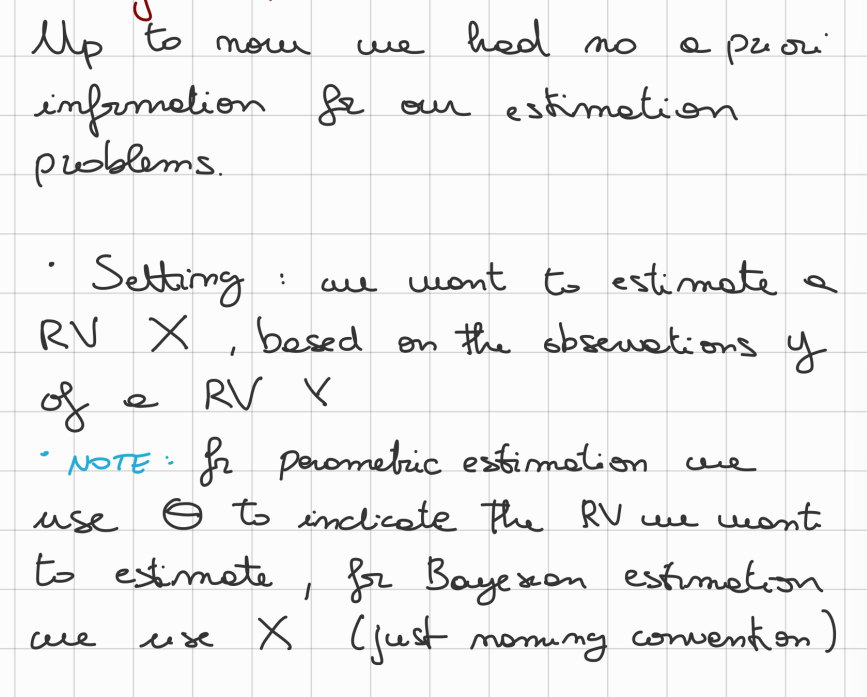 Up to now we had no a priori
information for our estimation
problems.
· Setting : we want to estimate a
RV X , based on the observations y
of a RV Y
· NOTE : for parametric estimation we
use Θ to indicate the RV we want
to estimate , for Bayesian estimation
we use X (just naming convention)